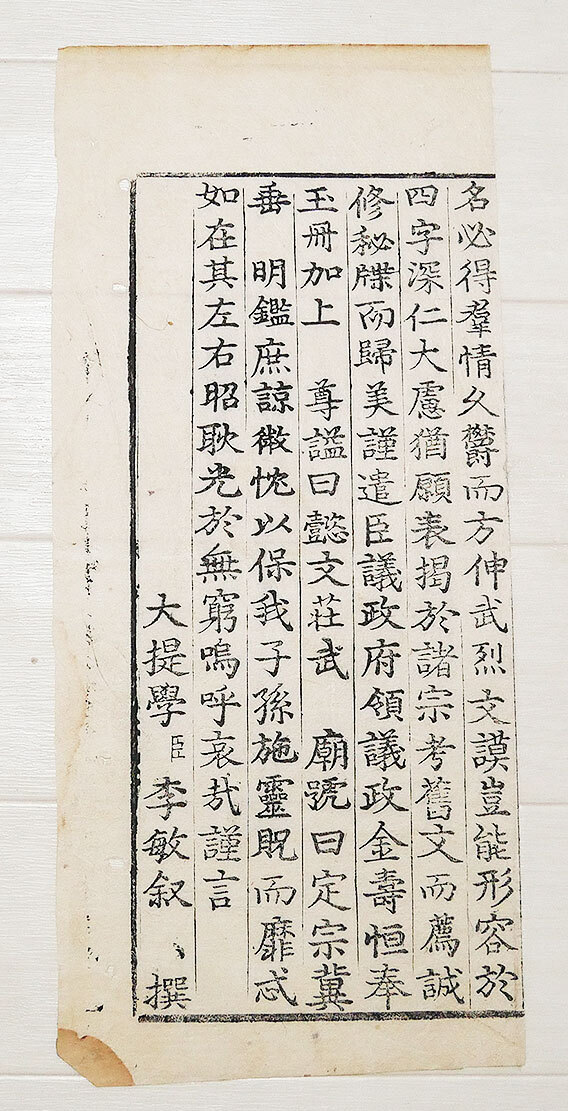 名必得羣情久鬱而方伸武烈文謨豈能形容於
四字深仁大慮猶願表揭於諸宗考舊文而薦誠
修秘牒而歸美謹遣臣議政府領議政金壽恒奉
玉冊加上 尊謚曰懿文莊武 廟號曰定宗冀
垂 明鑑庶諒微忱以保我子孫施靈貺而靡忒
如在其左右昭耿光於無窮嗚呼哀哉謹言
大提學臣李敏叙 撰